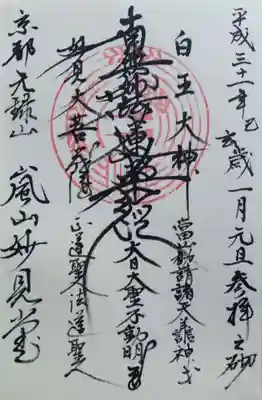 平成三十一年己亥歳一月元旦参拝之砌
當山勧請諸天龍神
白王大神
大日大聖不動明王
南無妙法蓮華経
妙見大菩薩
道聖人法道聖人
京都
嵐山妙見堂